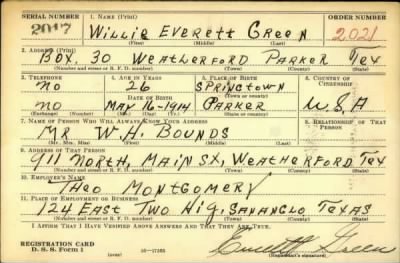 SERIAL NUMBER 1. NAME (Print) ORDER NUMBER
2017 WILLIE EVERETT GREEN 2021
(First) (Middle) (Last)
2. ADDRESS (Print)
BOX. 30 WEATHERFORD PARKER TEX
(Number and street or R. F. D. number) (Town) (County) (State)
3. TELEPHONE 4. AGE IN YEARS 5. PLACE OF BIRTH 6. COUNTRY OF CITIZENSHIP
NO 26 SPRINGTOWN
DATE OF BIRTH (Town or county)
NO MAY 16-1914 PARKER U.S.A
(Exchange) (Number) (Mo.) (Day) (Yr.) (State or country)
7. NAME OF PERSON WHO WILL ALWAYS KNOW YOUR ADDRESS 8. RELATIONSHIP OF THAT PERSON
MR W.H. BOUNDS
(Mr., Mrs., Miss) (First) (Middle) (Last)
9. ADDRESS OF THAT PERSON
911 NORTH, MAIN ST, WEATHERFORD TEX
(Number and street or R. F. D. number) (Town) (County) (State)
10. EMPLOYER'S NAME
THEO MONTGOMERY
11. PLACE OF EMPLOYMENT OR BUSINESS
124 EAST TWO HIG, SANANGLO TEXAS
(Number and street or R. F. D. number) (Town) (County) (State)
I AFFIRM THAT I HAVE VERIFIED ABOVE ANSWERS AND THAT THEY ARE TRUE.
REGISTRATION CARD
D. S. S. Form 1 Everett Green
(Registrant's signature)